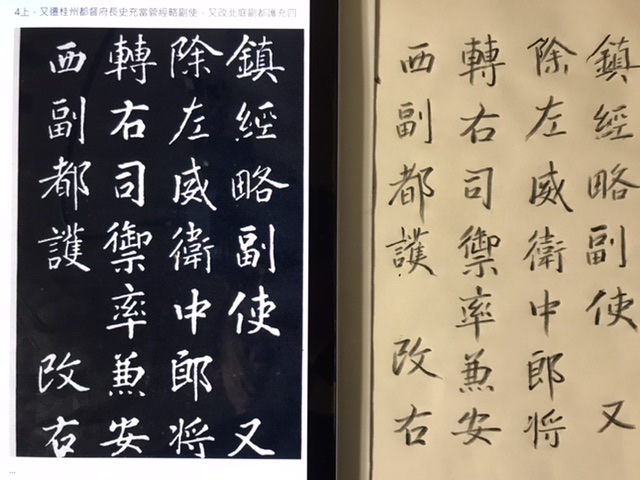 4上、又遷桂州都督府長史充當管經略副使、又改北庭副都護充四
鎮經略副使 又
除左威衛中郎将
轉右司禦率兼安
西副都護 改右
...
鎮經略副使 又
除左威衛中郎将
轉右司禦率兼安
西副都護 改右